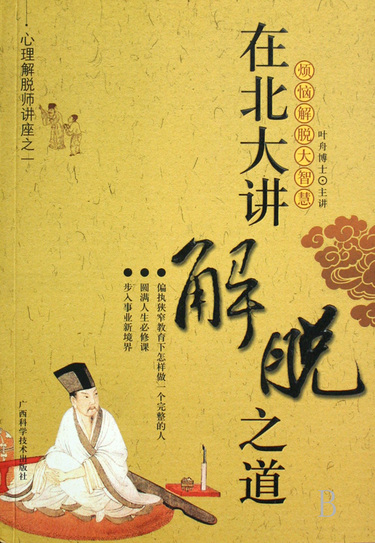 心理解脱师讲座之一
在北大讲
解脱
之道
烦恼解脱大智慧
叶舟博士⊙主讲
●偏执狭窄教育下怎样做一个完整的人
●圆满人生必修课
●步入事业新境界
广西科学技术出版社
B